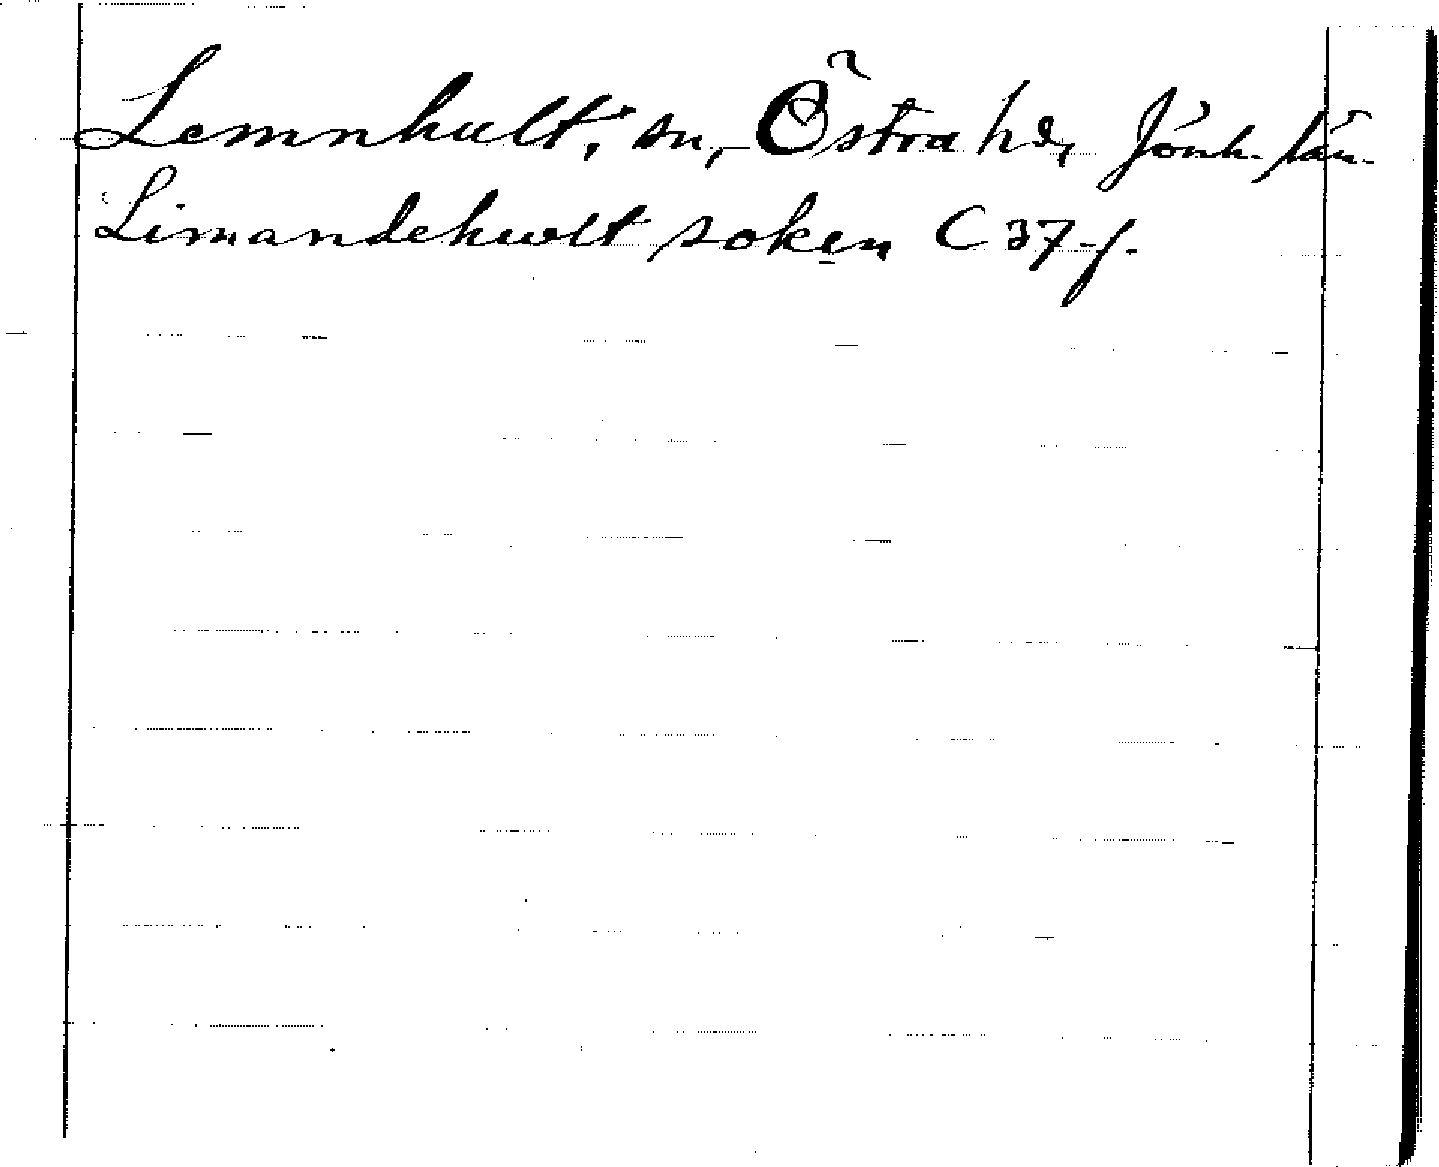 Lemnhult, sn, Östra hd, Jönk. län.
Limandehwlt soken C 37 f.